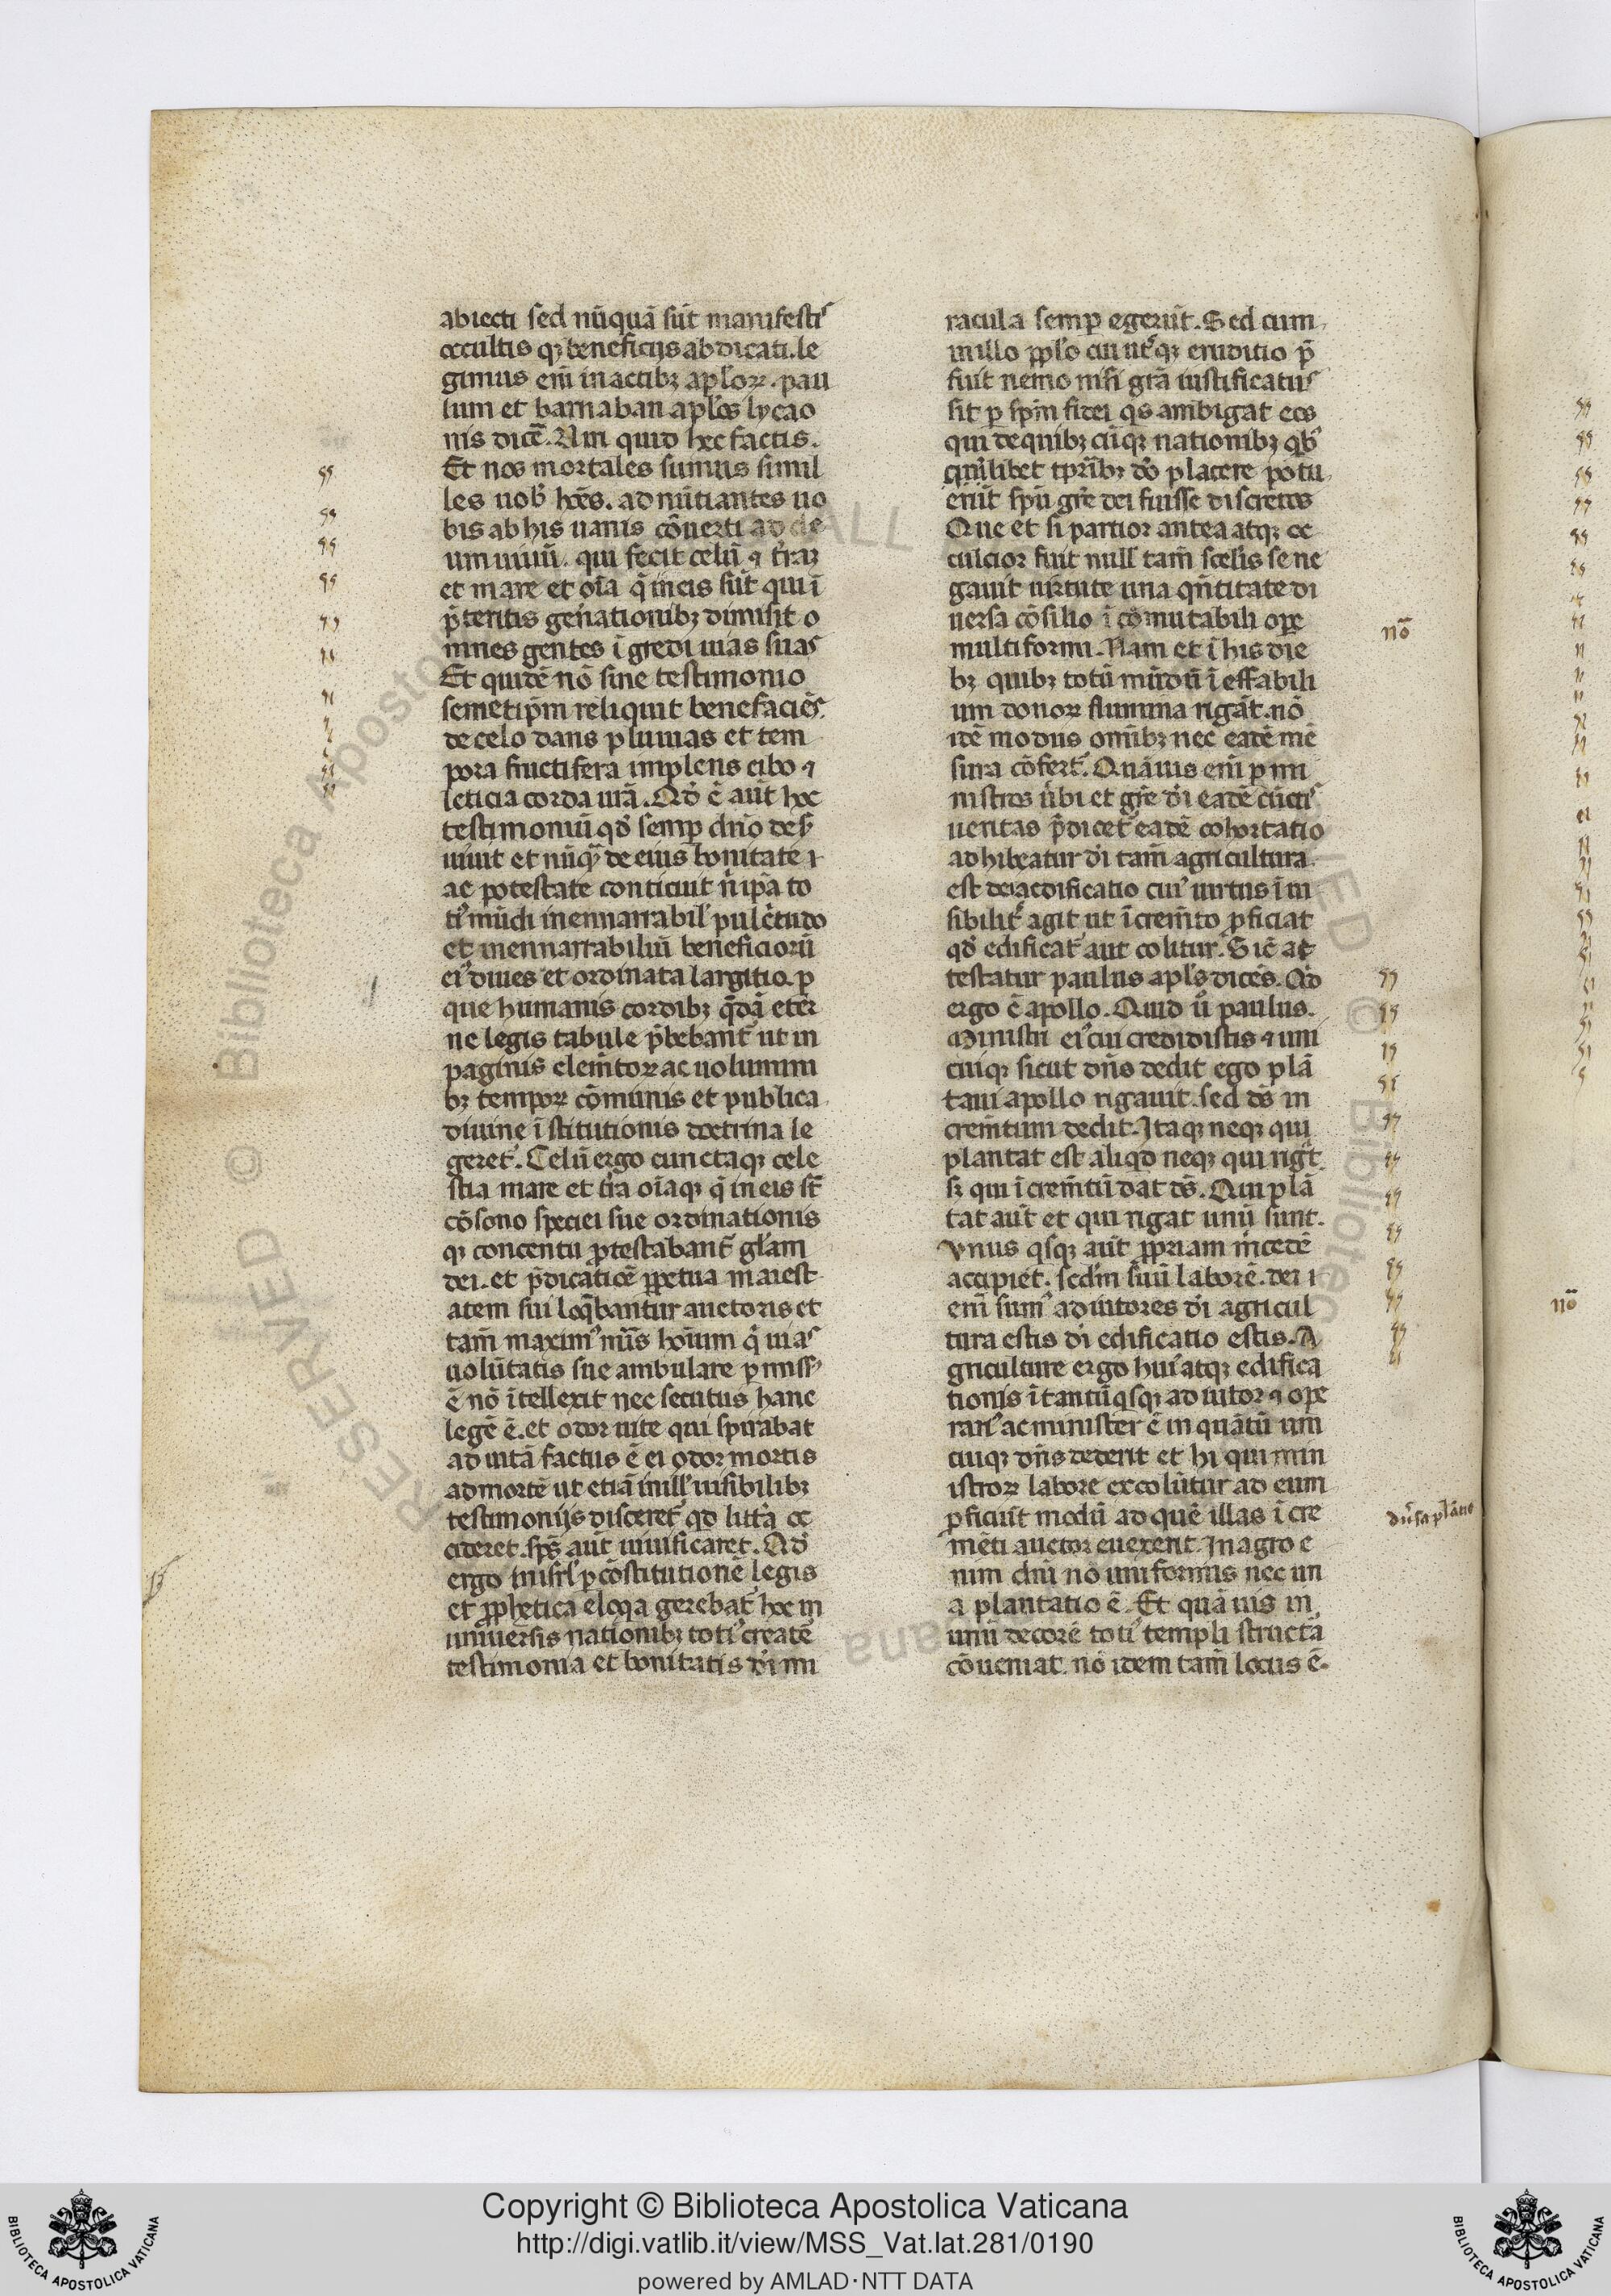 abiecti sed nūquā sūt manifesti᷒
occultis qꝫ beneficijs abdicati. le
gimus em̄ in actibꝫ apl̄oꝝ. pau
lum et barnaban apl̄os lycao
nis dicē. Uiri quid hec factis.
Et nos mortales sumus simil
les uob̄ hoēs. adnūtiantes uo
bis ab his uanis cōuerti ad de
um uiuū. qui fecit celū ⁊ t̄raꝫ
et mare et oīa q̄ in eis sūt qui ī
p̄teritis gen̄ationibꝫ dimisit o
mnes gentes īgredi uias suas
Et quidē nō sine testimonio
semetip̄m reliquit benefaciēs.
de celo dans pluuias et tem
pora fructifera implens cibo ⁊
leticia corda uīa. Qd̄ ē aūt hoc
testimoniū qd̄ semp̱ dn̄o des̄
uiuit et nūqᷓ de eius bonitate ⁊
ac potestate conticuit n̄ ip̄a to
tiꝰ mūdi inennarrabil̄ pulc̄tudo
et inennarrabiliū beneficiorū
eiꝰ diues et ordinata largitio. ꝑ
que humanis cordibꝫ q̄dā eter
ne legis tabule p̄bebant᷑ ut in
paginis elem̄toꝝ ac uolumini
bꝫ tempoꝝ cōmunis et publica
diuine īstitutionis doctrina le
geret᷑. Celū ergo cunctaqꝫ cele
stia mare et t̄ra oīaqꝫ q̄ in eis st̄
cōsono speciei sue ordinationis
qꝫ concentu ꝓtestabant᷑ gl̄am
dei. et p̄dicaticē ꝑpetua maiest
atem sui loq̄bantur auctoris et
tam̄ maximꝰ nūs hoīum q̄ uias
uolūtatis sue ambulare ꝑmissꝰ
ē nō ītellexit nec secutus hanc
legē ē. et odor uite qui spirabat
ad uitā factus ē ei odor mortis
ad mortē ut etiā in ill᷒ uisibilibꝫ
testimonijs disceret᷑ qd̄ litt̄a oc
cideret. sp̄s aūt uiuificaret. Qd̄
ergo in isrl̄ ꝑ cōstitutionē legis
et ꝓphetica eloq̄a gerebat᷑ hoc in
uniuersis nationibꝫ totiꝰ creatē
testimonia et bonitatis d̄i mi
racula semp̱ egerūt. Sed cum
in illo pp̄lo cui ut̄qꝫ eruditio p̄
fuit nemo nisi gr̄a iustificatus
sit ꝑ sp̄m fidei qs ambigat eos
qui de quibꝫ cūqꝫ nationibꝫ qb᷒
qn̄libet tp̄ribꝫ do placere potu
erūt sp̄u gr̄e dei fuisse discretos
Que et si partior antea atqꝫ oc
culcior fuit null᷒ tam̄ sc̄lis se ne
gauit uirtute una qn̄titate di
uersa cōsilio īcōmutabili ope
multiformi. Nam et ī his die
bꝫ quibꝫ totū mūdū īeffabili
um donoꝝ flumina rigāt. nō
idē modus omībꝫ nec eadē mē
sura cōfert᷑. Quāuis em̄ ꝑ mi
nistros ūbi et gr̄e d̄i eadē cūctis
ueritas p̄dicet᷑ eadē cohortatio
adhibeatur d̄i tam̄ agricultura
est dei aedificatio cuiꝰ uirtus īui
sibilit᷑ agit ut īcrem̄to ꝓficiat
qd̄ edificat᷑ aut colitur. Sic̄ at
testatur paulus apl̄s dicēs. Qd̄
ergo ē apollo. Quid ū paulus.
Ministri eiꝰ cui credidistis ⁊ uni
cuiqꝫ sicut dn̄s dedit ego plā
taui apollo rigauit. sed d̄s in
crem̄tum dedit. Itaqꝫ neqꝫ qui
plantat est aliqd neqꝫ qui rigᷓt
sꝫ qui īcrem̄tū dat d̄s. Qui plā
tat aūt et qui rigat unū sunt.
Unus qsqꝫ aūt ꝓpriam m̄cedē
accipiet. sedm̄ suū laborē. dei ⁊
em̄ sumꝰ adiutores d̄i agricul
tura estis d̄i edificatio estis. A
griculture ergo huiꝰ atqꝫ edifica
tionis ī tantū qsqꝫ adiutor ⁊ ope
rariꝰ ac minister ē in quātū uni
cuiqꝫ dn̄s dederit et hi qui min
istroꝝ labore excolūtur ad eum
ꝓficiūt modū ad quē illas īcre
mēti auctor euexerit. In agro e
nim dn̄i nō uniformis nec un
a plantatio ē. Et quāuis in
unū decorē totiꝰ templi structā
cōueniat. nō idem tam̄ locus ē.
nō
nō
Copyright © Biblioteca Apostolica Vaticana
http://digi.vatlib.it/view/MSS_Vat.lat.281/0190
powered by AMLAD·NTT DATA
BIBLIOTECA APOSTOLICA VATICANA
BIBLIOTECA APOSTOLICA VATICANA